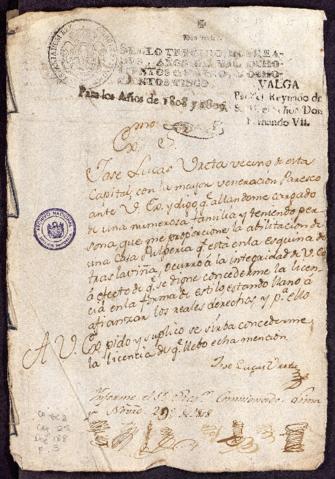 SELLO TERCERO, DOS REA-
LES, AÑOS DE MIL OCHO-
CIENTOS QUATRO, Y OCHO-
CIENTOS CINCO.
VALGA
Para los Años de 1808 y 1809.
Para el Reynado de
S. M. el Señor Don
Fernando VII.
Exmo. S.
Jose Lucas Ureta vecino de esta
Capital con la mayor veneracion Paresco
ante V. Ex. y digo q. allandome cargado
de una numerosa familia y teniendo per
sona que me proporcione la abilitacion de
una casa Pulperia q. está en la esquina de
traslaviña, ocurro á la integridad de V. Ex
á efecto de q. se digne concederme la licen
cia en la forma de estilo estando llano á
afianzar los reales derechos y p.r ello
A V. Ex pido y suplico se sirba concederme
la licencia de q. llebo echa mencion
Jose Lucas Ureta
Informe el